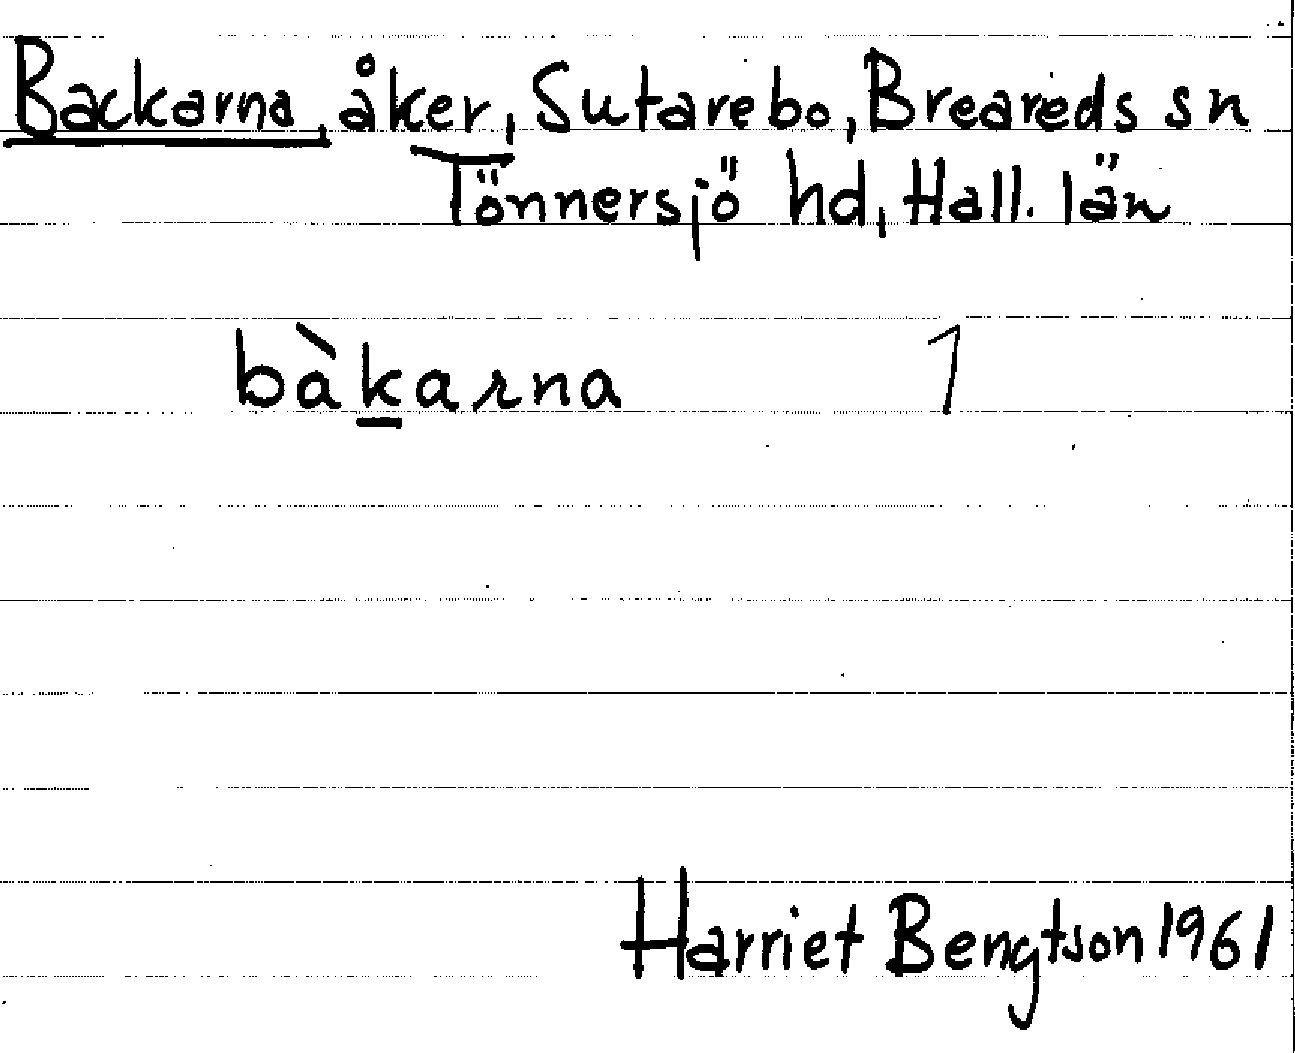 Backarna, åker, Sutarebo, Breareds sn
Tönnersjö hd, Hall. län
bàkarna 1
Harriet Bengtson 1961